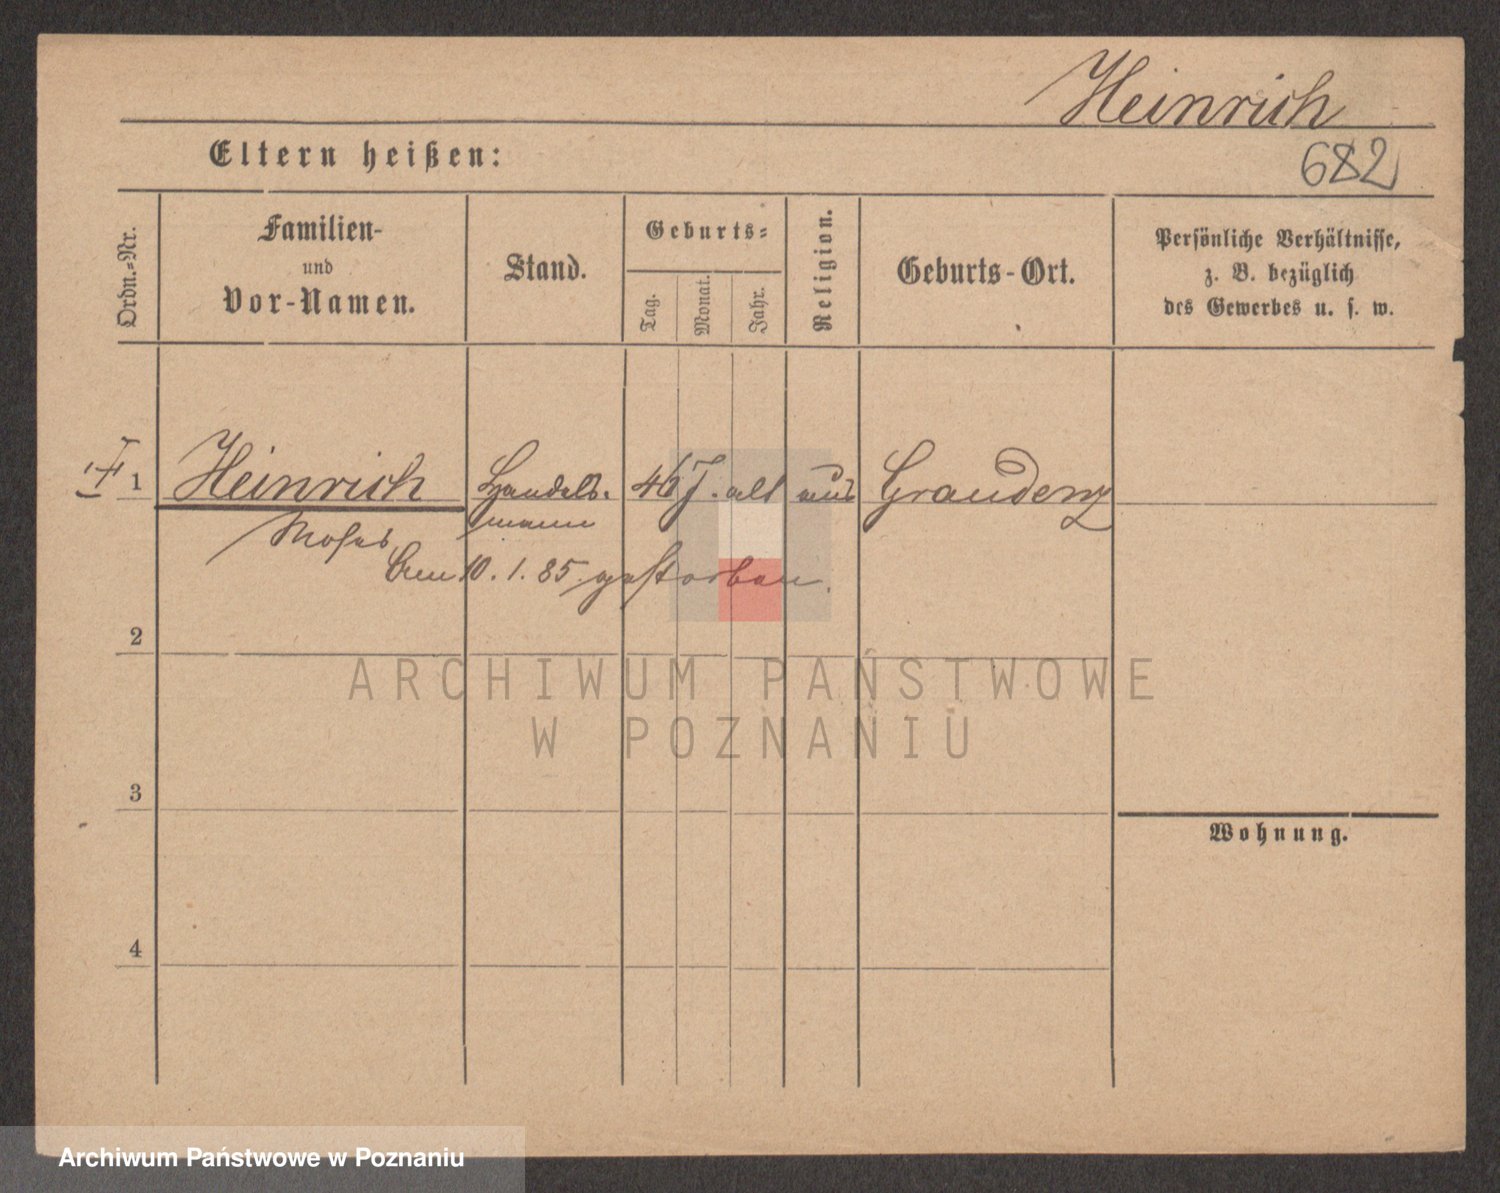 Heinrich
Eltern heißen:
682
Ordn.-Nr.
Familien-
und
Vor-Namen.
Stand.
Geburts-
Tag.
Monat.
Jahr.
Religion.
Geburts-Ort.
Persönliche Verhältnisse,
z. B. bezüglich
des Gewerbes u. s. w.
1 Heinrich Handels- 46 J. alt aus Graudenz
Moses mann
10.1.85 gestorben.
2
ARCHIWUM PAŃSTWOWE
W POZNANIU
3
Wohnung.
4
Archiwum Państwowe w Poznaniu